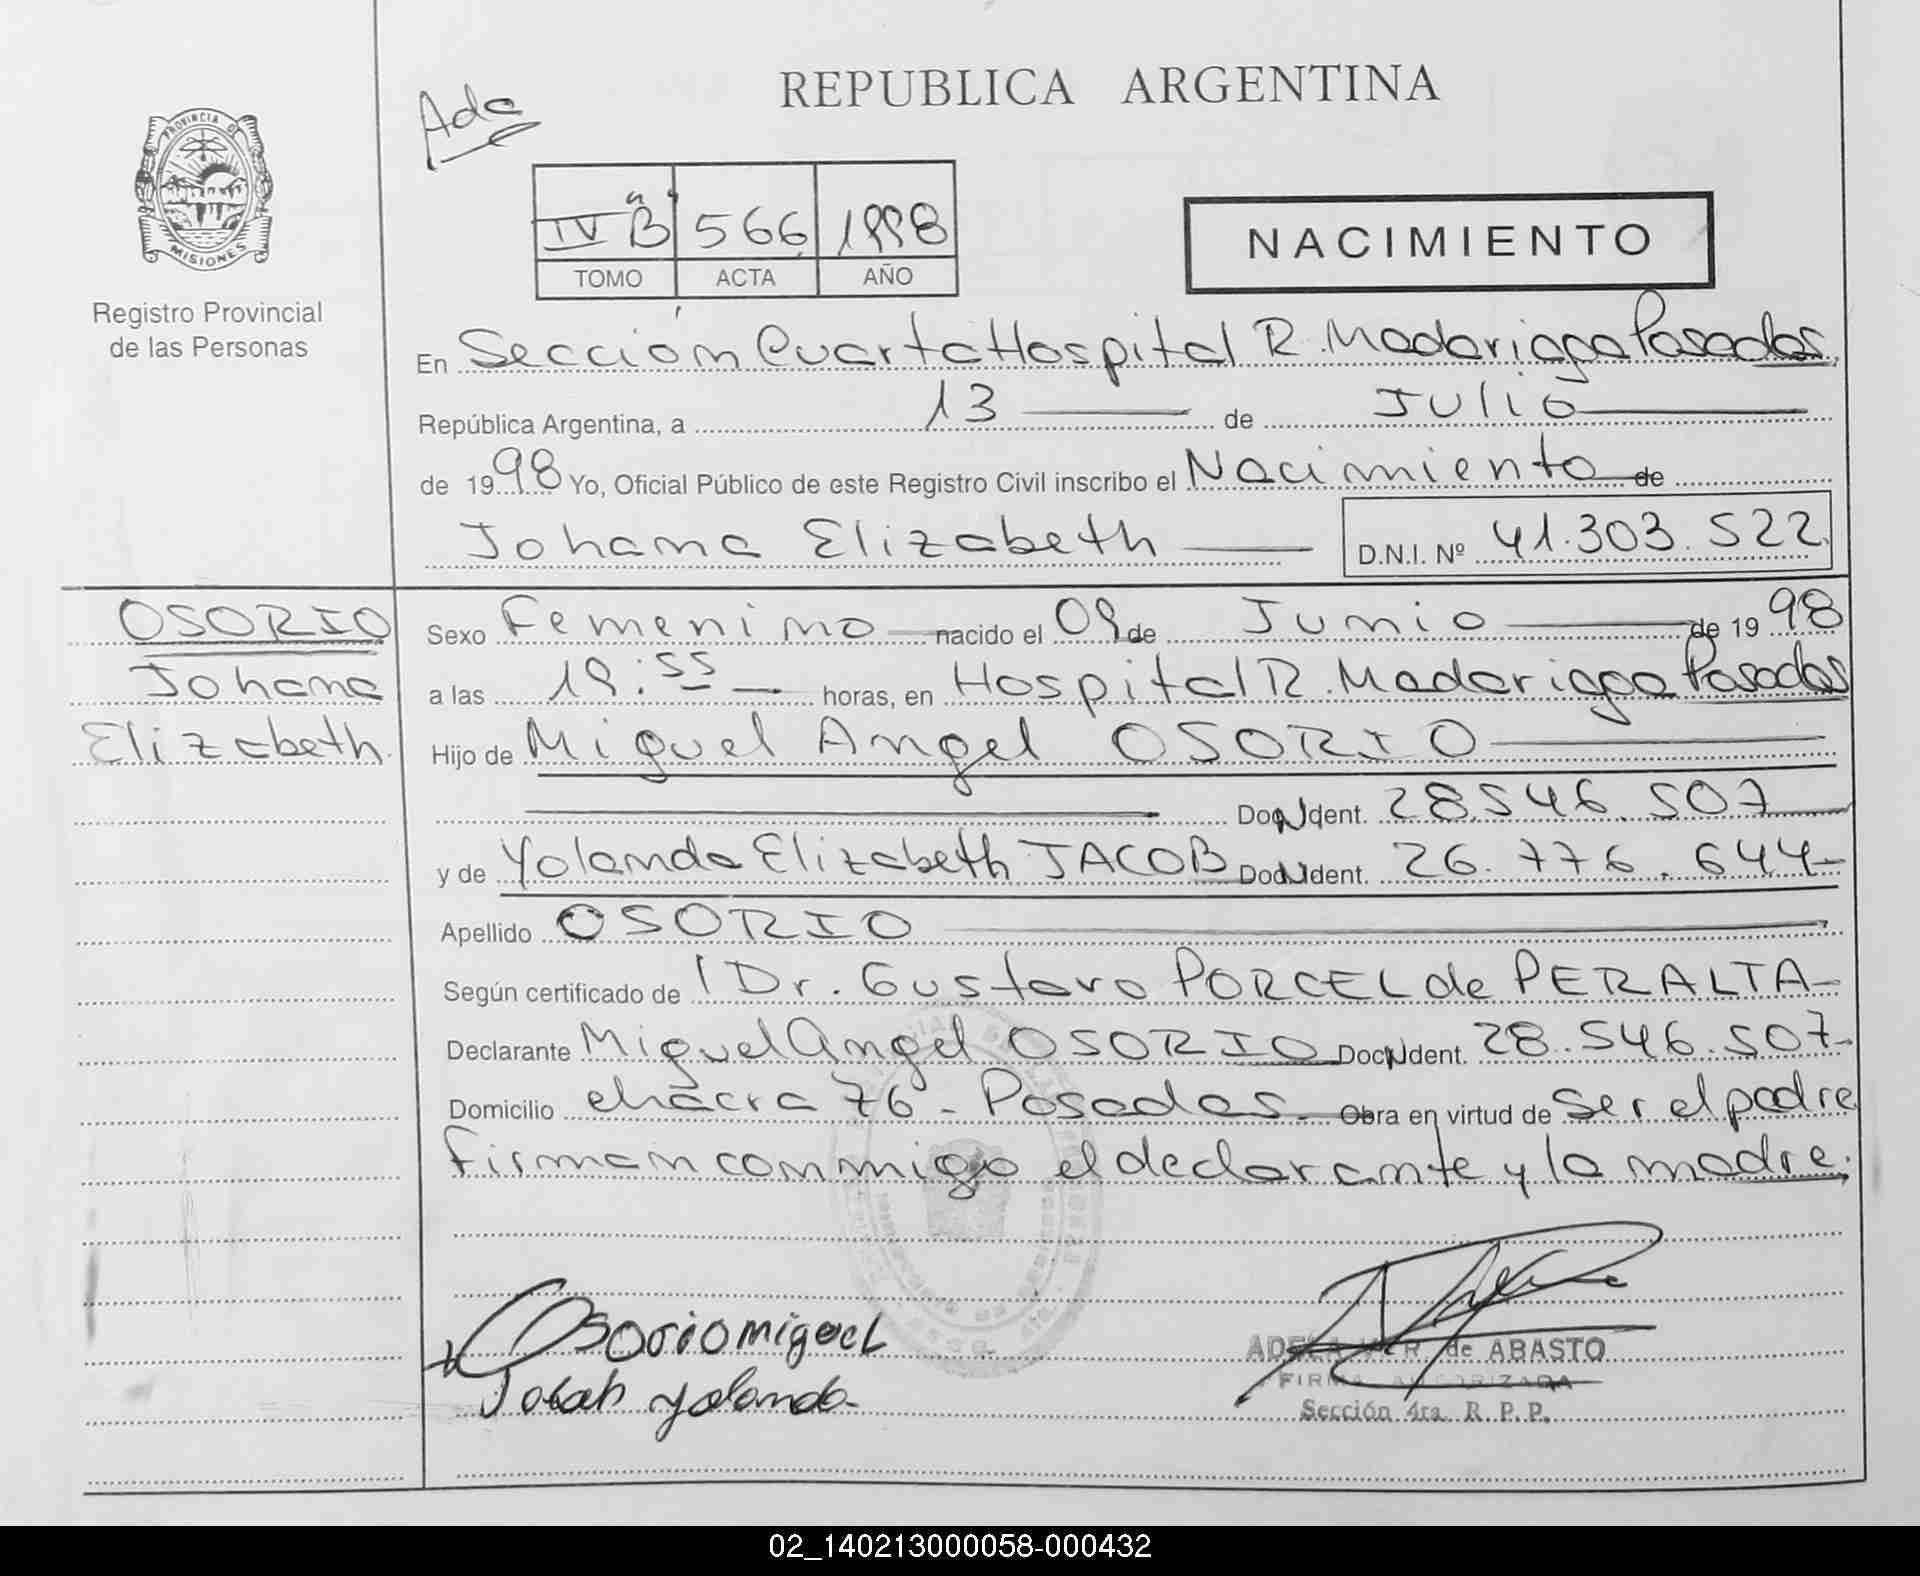 REPUBLICA ARGENTINA
Ada
PROVINCIA DE
MISIONES
Registro Provincial
de las Personas
IV "B" 566 1998
TOMO ACTA AÑO
NACIMIENTO
En Sección Cuarta Hospital R. Madariaga Posadas,
República Argentina, a 13 de Julio
de 1998 Yo, Oficial Público de este Registro Civil inscribo el Nacimiento de
Johana Elizabeth D.N.I. Nº 41.303.522
OSORIO
Johana
Elizabeth.
Sexo Femenino nacido el 09 de Junio de 1998
a las 19:55 horas, en Hospital R. Madariaga Posadas
Hijo de Miguel Angel OSORIO
Doc. Ident. 28.546.507
y de Yolanda Elizabeth JACOB Doc. Ident. 26.776.644
Apellido OSORIO
Según certificado de Dr. Gustavo PORCEL de PERALTA
Declarante Miguel Angel OSORIO Doc. Ident. 28.546.507
Domicilio chacra 76 - Posadas. Obra en virtud de Ser el padre
firman conmigo el declarante y la madre.
Osorio miguel
Yolanda
de ABASTO
FIRMA AUTORIZADA
Sección 4ta. R. P. P.
02_140213000058-000432